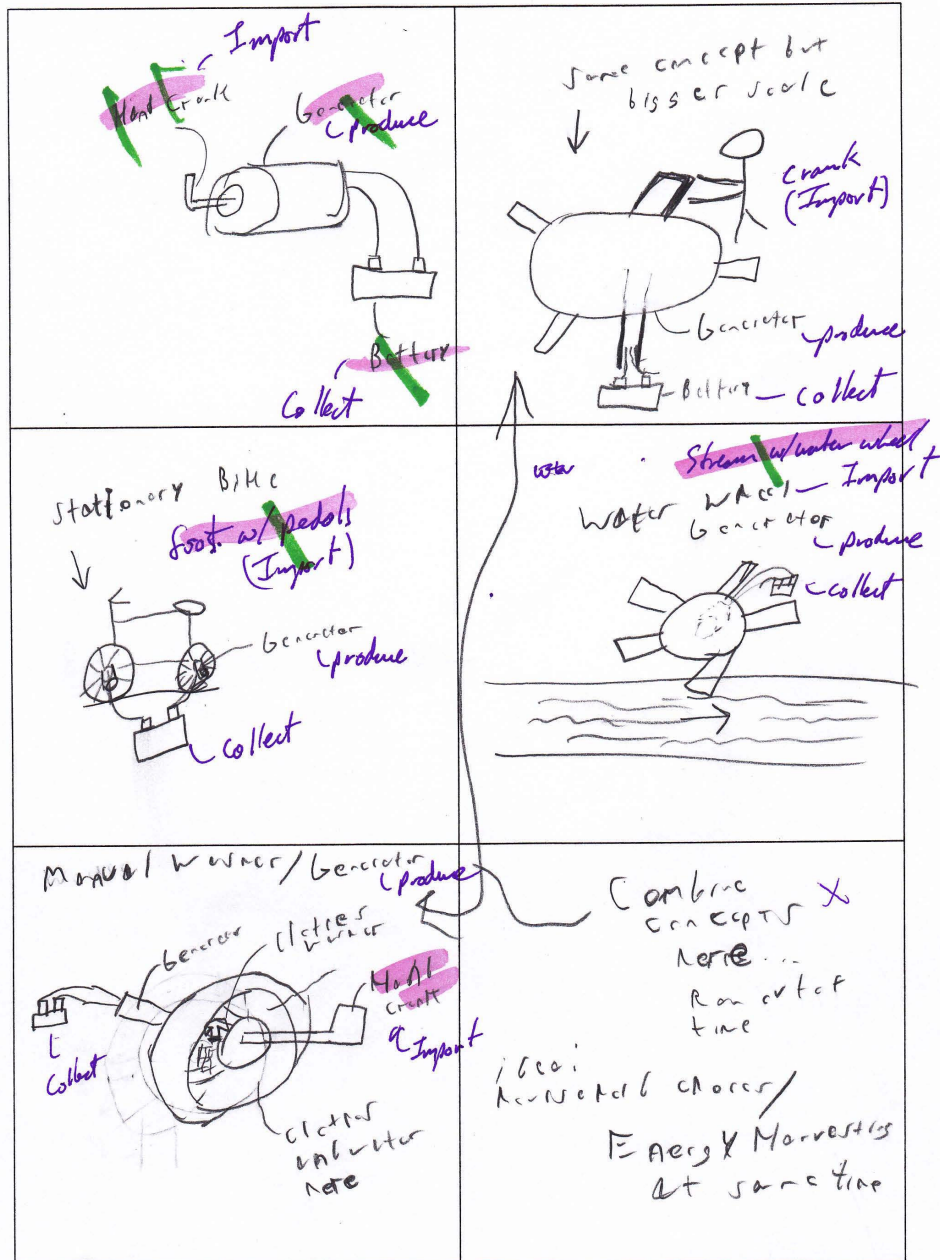 Import
Hand Crank
Generator
produce
Battery
Collect
same concept but
bigger scale
crank
(Import)
Generator
produce
Battery
collect
Stationary Bike
foot w/ pedals
(Import)
Generator
produce
collect
water
Stream w/ water wheel
Import
Water Wheel
Generator
produce
collect
Manual Washer/Generator
produce
Generator
Clothes
washer
Hand
crank
Import
Collect
clothes
and water
here
Combine
concepts
here...
X
Ran out of
time
idea:
household chores/
Energy Harvesting
at same time